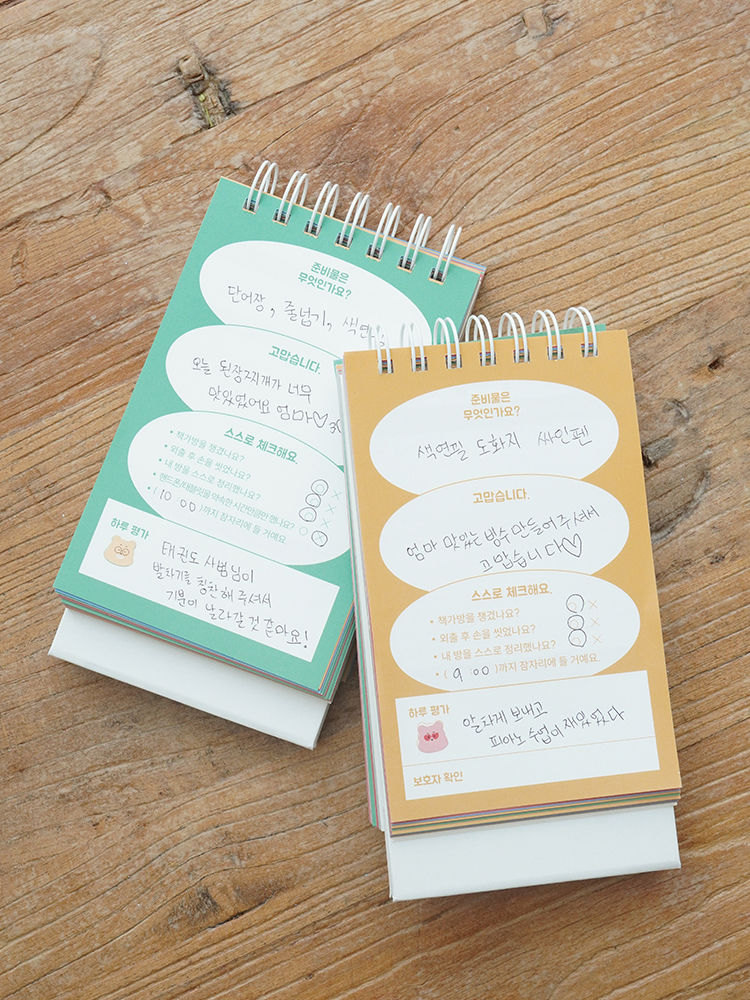 준비물은
무엇인가요?
단어장, 줄넘기,
고맙습니다.
오늘 된장찌개가 너무
맛있었어요 엄마♡
스스로 체크해요.
• 책가방을 챙겼나요? ○ ×
• 외출 후 손을 씻었나요? ○ ×
• 내 방을 스스로 정리했나요? ○ ×
• 핸드폰/태블릿을 약속한 시간만큼만 했나요? ○ ×
• ( 10:00 )까지 잠자리에 들 거예요
하루 평가
태권도 사범님이
발차기를 칭찬해 주셔서
기분이 날라갈 것 같아요!
준비물은
무엇인가요?
색연필 도화지 싸인펜
고맙습니다.
엄마 맛있는 빙수 만들어 주셔서
고맙습니다♡
스스로 체크해요.
• 책가방을 챙겼나요? ○ ×
• 외출 후 손을 씻었나요? ○ ×
• 내 방을 스스로 정리했나요? ○ ×
• ( 9:00 )까지 잠자리에 들 거예요.
하루 평가
알차게 보내고
피아노 수업이 재밌었다
보호자 확인